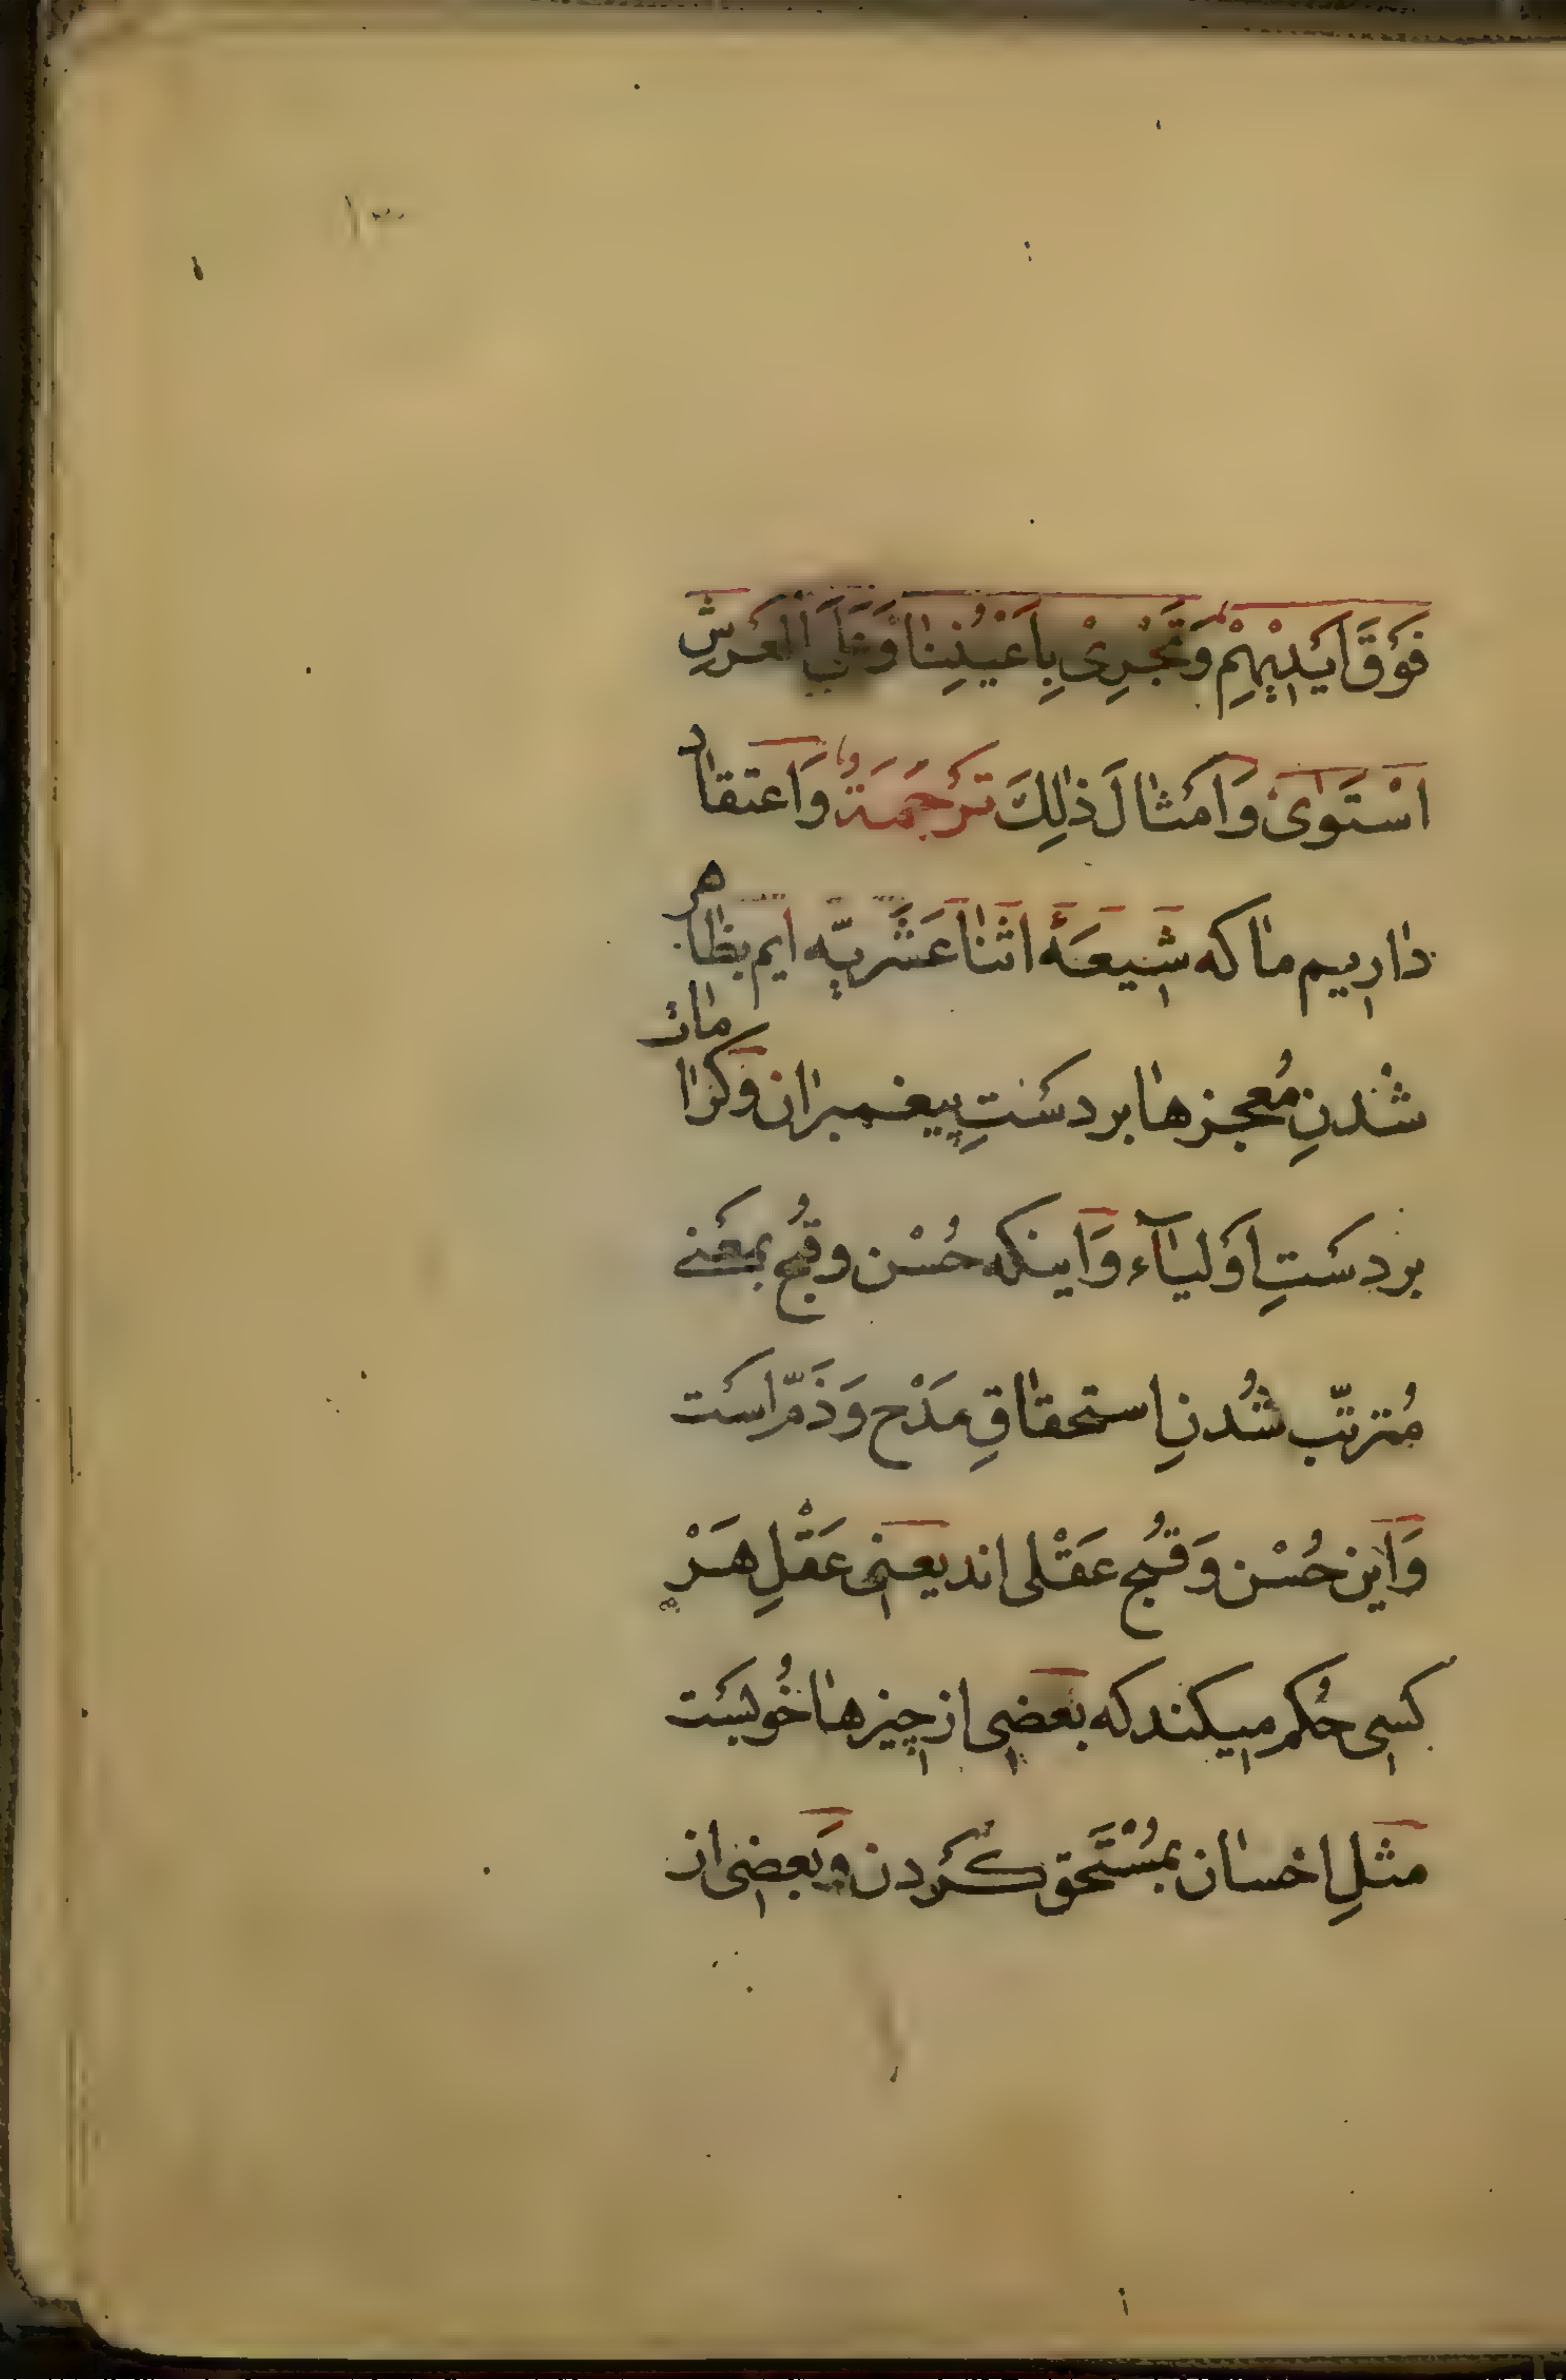 فَوْقَ اَیْدِیْهِمْ وَتَجْرِیْ بِاَعْیُنِنَا وَعَلَی الْعَرْشِ
اسْتَوَیٰ وَاَمْثَالَ ذٰلِكَ تَرْجَمَةٌ وَاعتقاد
داریم ما که شیعَهٔ اثنا عَشَریّه ایم بظاهر
شُدنِ مُعجزها بر دسْتِ پیغمبران وکرامات
بر دسْتِ اَوْلیآء وَاینکه حُسْن وقُبح بمعْنی
مُترتّب شُدنِ استحقاقِ مَدْح وَذَمّ اسْت
وَاین حُسْن وَقُبح عَقْلی اند یعنی عَقْلِ هَرْ
کسی حُکم میکند که بعضی از چیزها خُوبسْت
مثلِ احسان بمُسْتَحق کَرْدن وَبعضی از